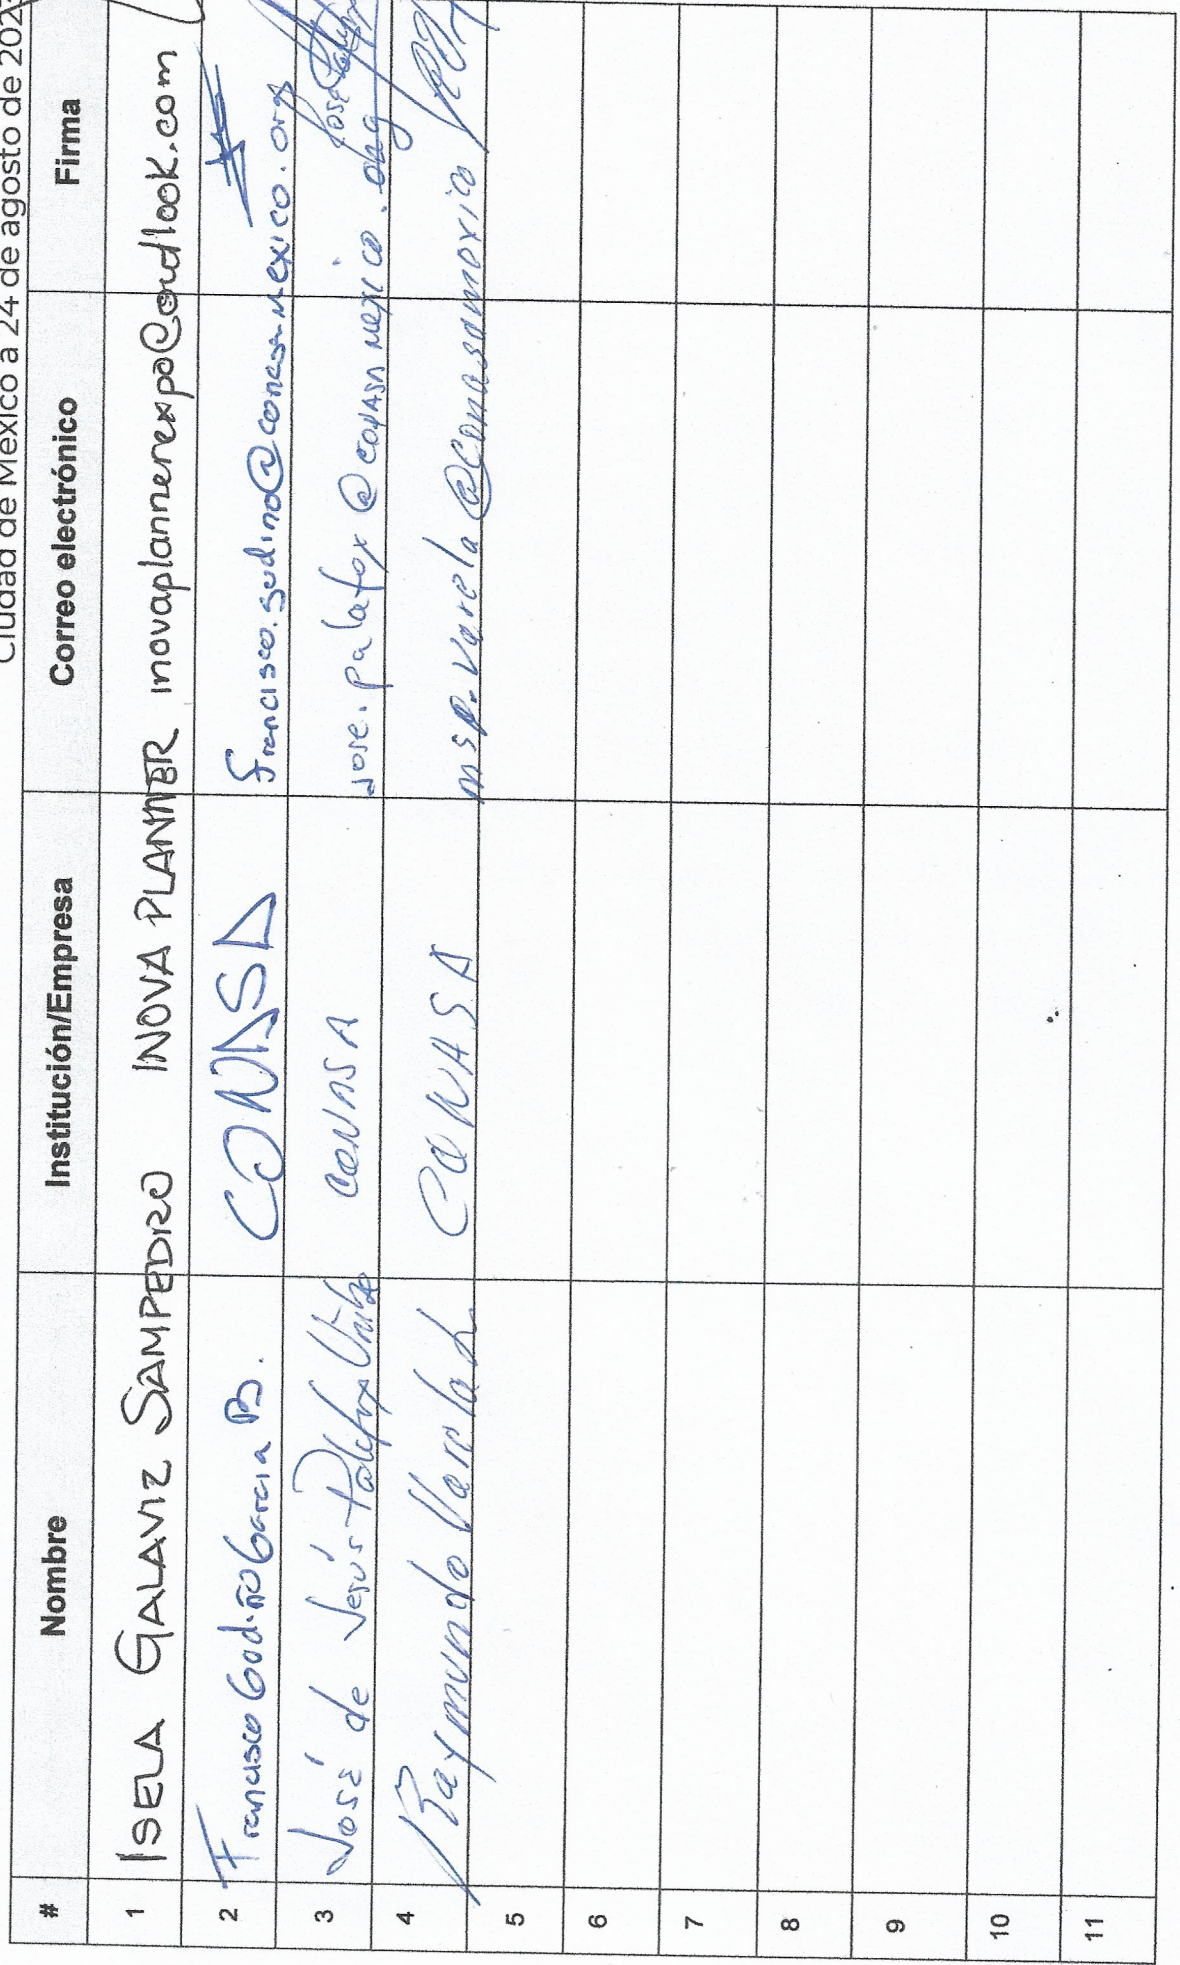 Ciudad de México a 24 de agosto de 202
# Nombre Institución/Empresa Correo electrónico Firma
1 ISELA GALAVIZ SAMPEDRO INOVA PLANNER inovaplannerexpo@outlook.com
2 Francisco Gudiño Garcia B. CONASA francisco.gudino@conasamexico.org
3 José de Jesús Palafox Uribe CONASA jose.palafox@conasamexico.org
4 Raymundo Varela L CONASA msp.varela@conasamexico
5
6
7
8
9
10
11